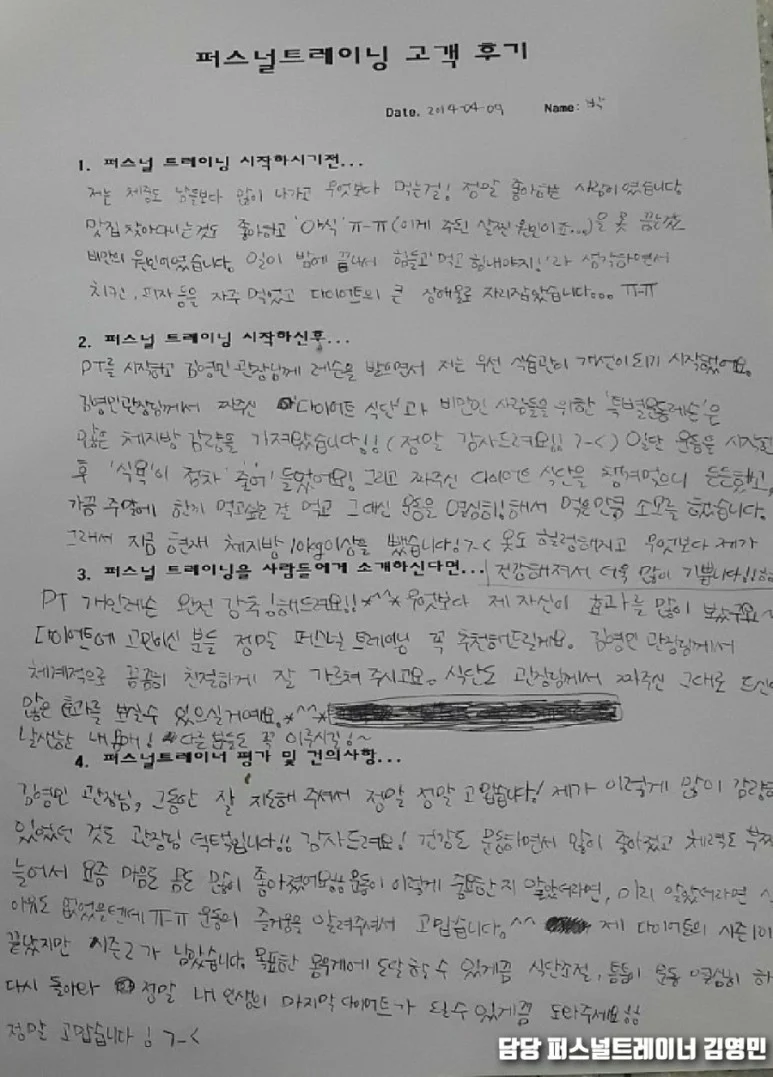 퍼스널트레이닝 고객 후기
Date. 2014-04-09 Name: 박
1. 퍼스널 트레이닝 시작하시기전...
저는 체중도 남들보다 많이 나가고 무엇보다 먹는걸! 정말 좋아하는 사람이였습니다
맛집 찾아다니는것도 좋아하고 '야식' ㅠ-ㅠ (이게 주된 살찐 원인이죠...)을 못 끊는것도
비만의 원인이였습니다. 일이 밤에 끝나서 힘들고 '먹고 힘내야지!' 라 생각하면서
치킨, 피자 등을 자주 먹었고 다이어트의 큰 장애물로 자리잡았습니다... ㅠ-ㅠ
2. 퍼스널 트레이닝 시작하신후...
PT를 시작하고 김영민 관장님께 레슨을 받으면서 저는 우선 식습관이 개선이 되기 시작했어요.
김영민관장님께서 짜주신 '다이어트 식단'과 비만인 사람들을 위한 '특별운동레슨'은
많은 체지방 감량을 가져왔습니다!! (정말 감사드려요!! >-<) 일단 운동을 시작한
후 '식욕'이 점차 '줄어'들었어요! 그리고 짜주신 다이어트 식단을 챙겨먹으니 든든했고,
가끔 주말에 한끼 먹고싶은 걸 먹고 그대신 운동을 열심히! 해서 먹은만큼 소모를 했습니다.
그래서 지금 현재 체지방 10kg이상을 뺐습니다! >-< 옷도 헐렁해지고 무엇보다 제가
3. 퍼스널 트레이닝을 사람들에게 소개하신다면... 건강해져서 더욱 많이 기쁩니다!!
PT 개인레슨 완전 강추!해드려요!! *^^* 무엇보다 제 자신이 효과를 많이 봤구요~
다이어트에 고민이신 분들 정말 퍼스널 트레이닝 꼭 추천해드릴게요. 김영민 관장님께서
체계적으로 꼼꼼히 친절하게 잘 가르쳐 주시고요. 식단도 관장님께서 짜주신 그대로 드신다
많은 효과를 보실수 있으실거예요. *^^*
날씬한 내 몸매! 다른분들도 꼭 이루시길!~
4. 퍼스널트레이너 평가 및 건의사항...
김영민 관장님, 그동안 잘 지도해 주셔서 정말 정말 고맙습니다! 제가 이렇게 많이 감량할
있었던 것도 관장님 덕택입니다!! 감사드려요! 건강도 운동하면서 많이 좋아졌고 체력도 부쩍
늘어서 요즘 마음도 몸도 많이 좋아졌어요!! 운동이 이렇게 중요한지 알았더라면, 미리 알았더라면
아픔도 없었을텐데 ㅠ-ㅠ 운동의 즐거움을 알려주셔서 고맙습니다. ^^ 제 다이어트의 시즌1이
끝났지만 시즌2가 남았습니다. 목표한 몸무게에 도달할 수 있게끔 식단조절, 틈틈이 운동 열심히 하
다시 돌아와 정말 내 인생의 마지막 다이어트가 될수 있게끔 도와주세요!!
정말 고맙습니다! >-<
담당 퍼스널트레이너 김영민